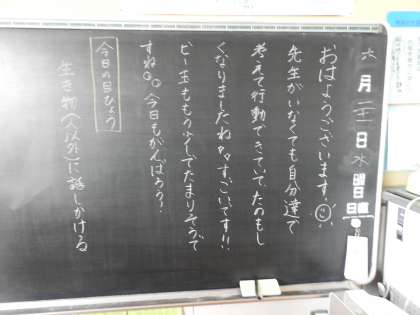 六月二十一日水曜日
日直
おはようございます。
先生がいなくても自分達で
考えて行動できていて、たのもし
くなりましたね。すごいです!!
ビー玉ももう少しでたまりそうで
すね。今日もがんばろう!
今日の目ひょう
生き物(人以外)に話しかける